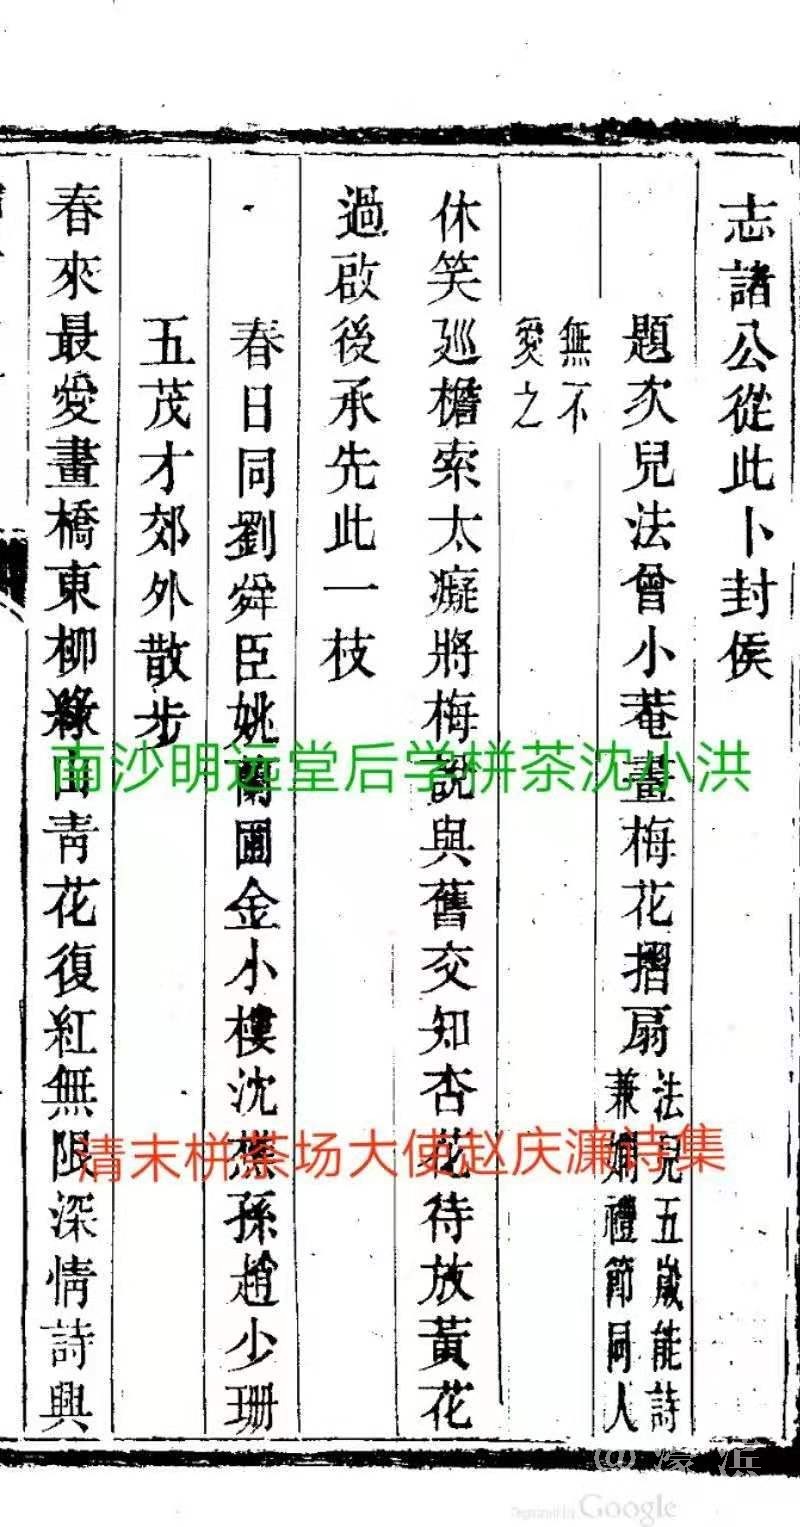 志諸公從此卜封侯
題次兒法曾小菴畫梅花摺扇
法兒五歲能詩
兼嫻禮節同人
無不
愛之
休笑廵檐索太癡將梅說與舊交知杏花待放黃花
過啟後承先此一枝
春日同劉舜臣姚蘭圃金小樓沈孫趙少珊
五茂才郊外散步
春來最愛畫橋東柳綠山青花復紅無限深情詩興
南沙明远堂后学栟茶沈小洪
清末栟茶场大使赵庆濂诗集
濠滨
Digitized by Google